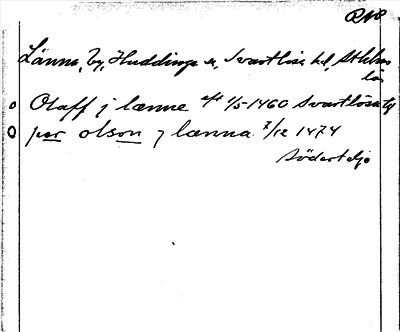 Länna, by, Huddinge sn, Svartlösa hd, Sthlms
län
Olaff j lænne aft 1/5 1460 Svartlösa tg
per olson j lænna 7/12 1474
Södertelje